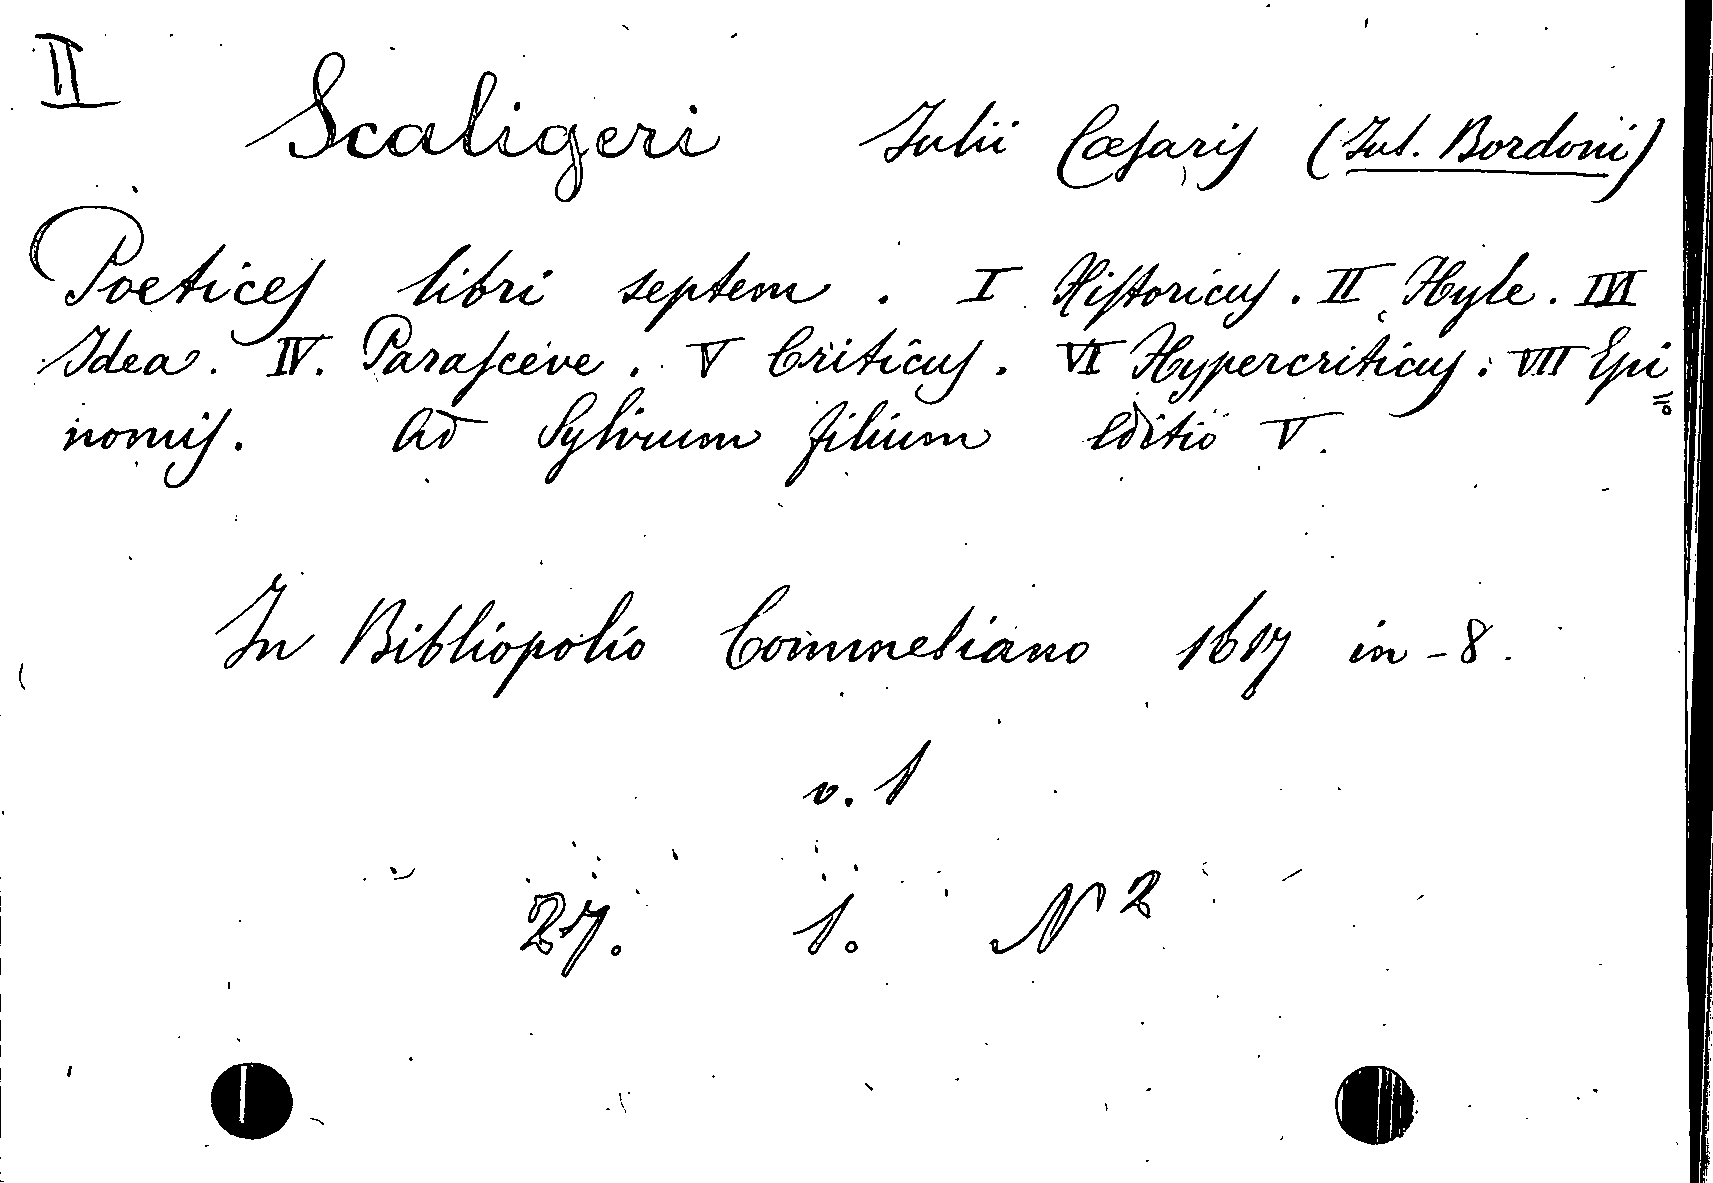 II
Scaligeri Julii Cæsaris (Jul. Bordoni)
Poetices libri septem. I Historicus. II Hyle. III
Idea. IV. Parasceve. V Criticus. VI Hypercriticus. VII Epi=
nomis. Ad Sylvium filium Editio V.
In Bibliopolio Commeliano 1617 in-8.
v. 1
27. 1. N 2